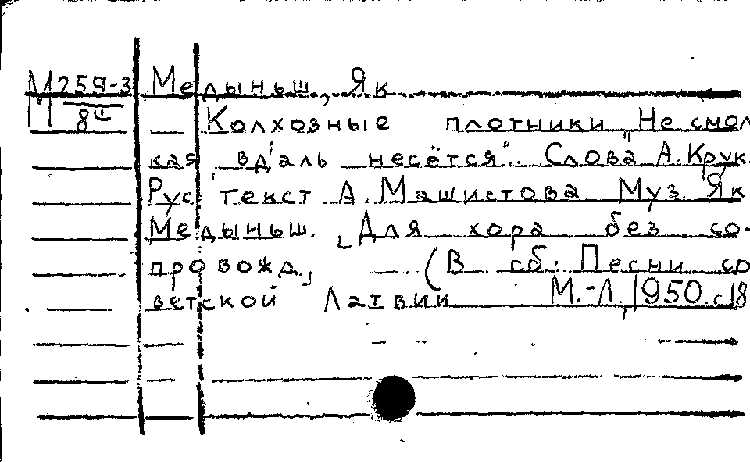 М 259-3 Медыньш, Як
8 Колхозные плотники „Не смол
кая вдаль несётся". Слова А. Крук.
Рус. текст А. Машистова Муз. Як
Медыньш. [Для хора без со-
провожд.] (В сб: Песни со
ветской Латвии М.-Л, 1950. с. 18